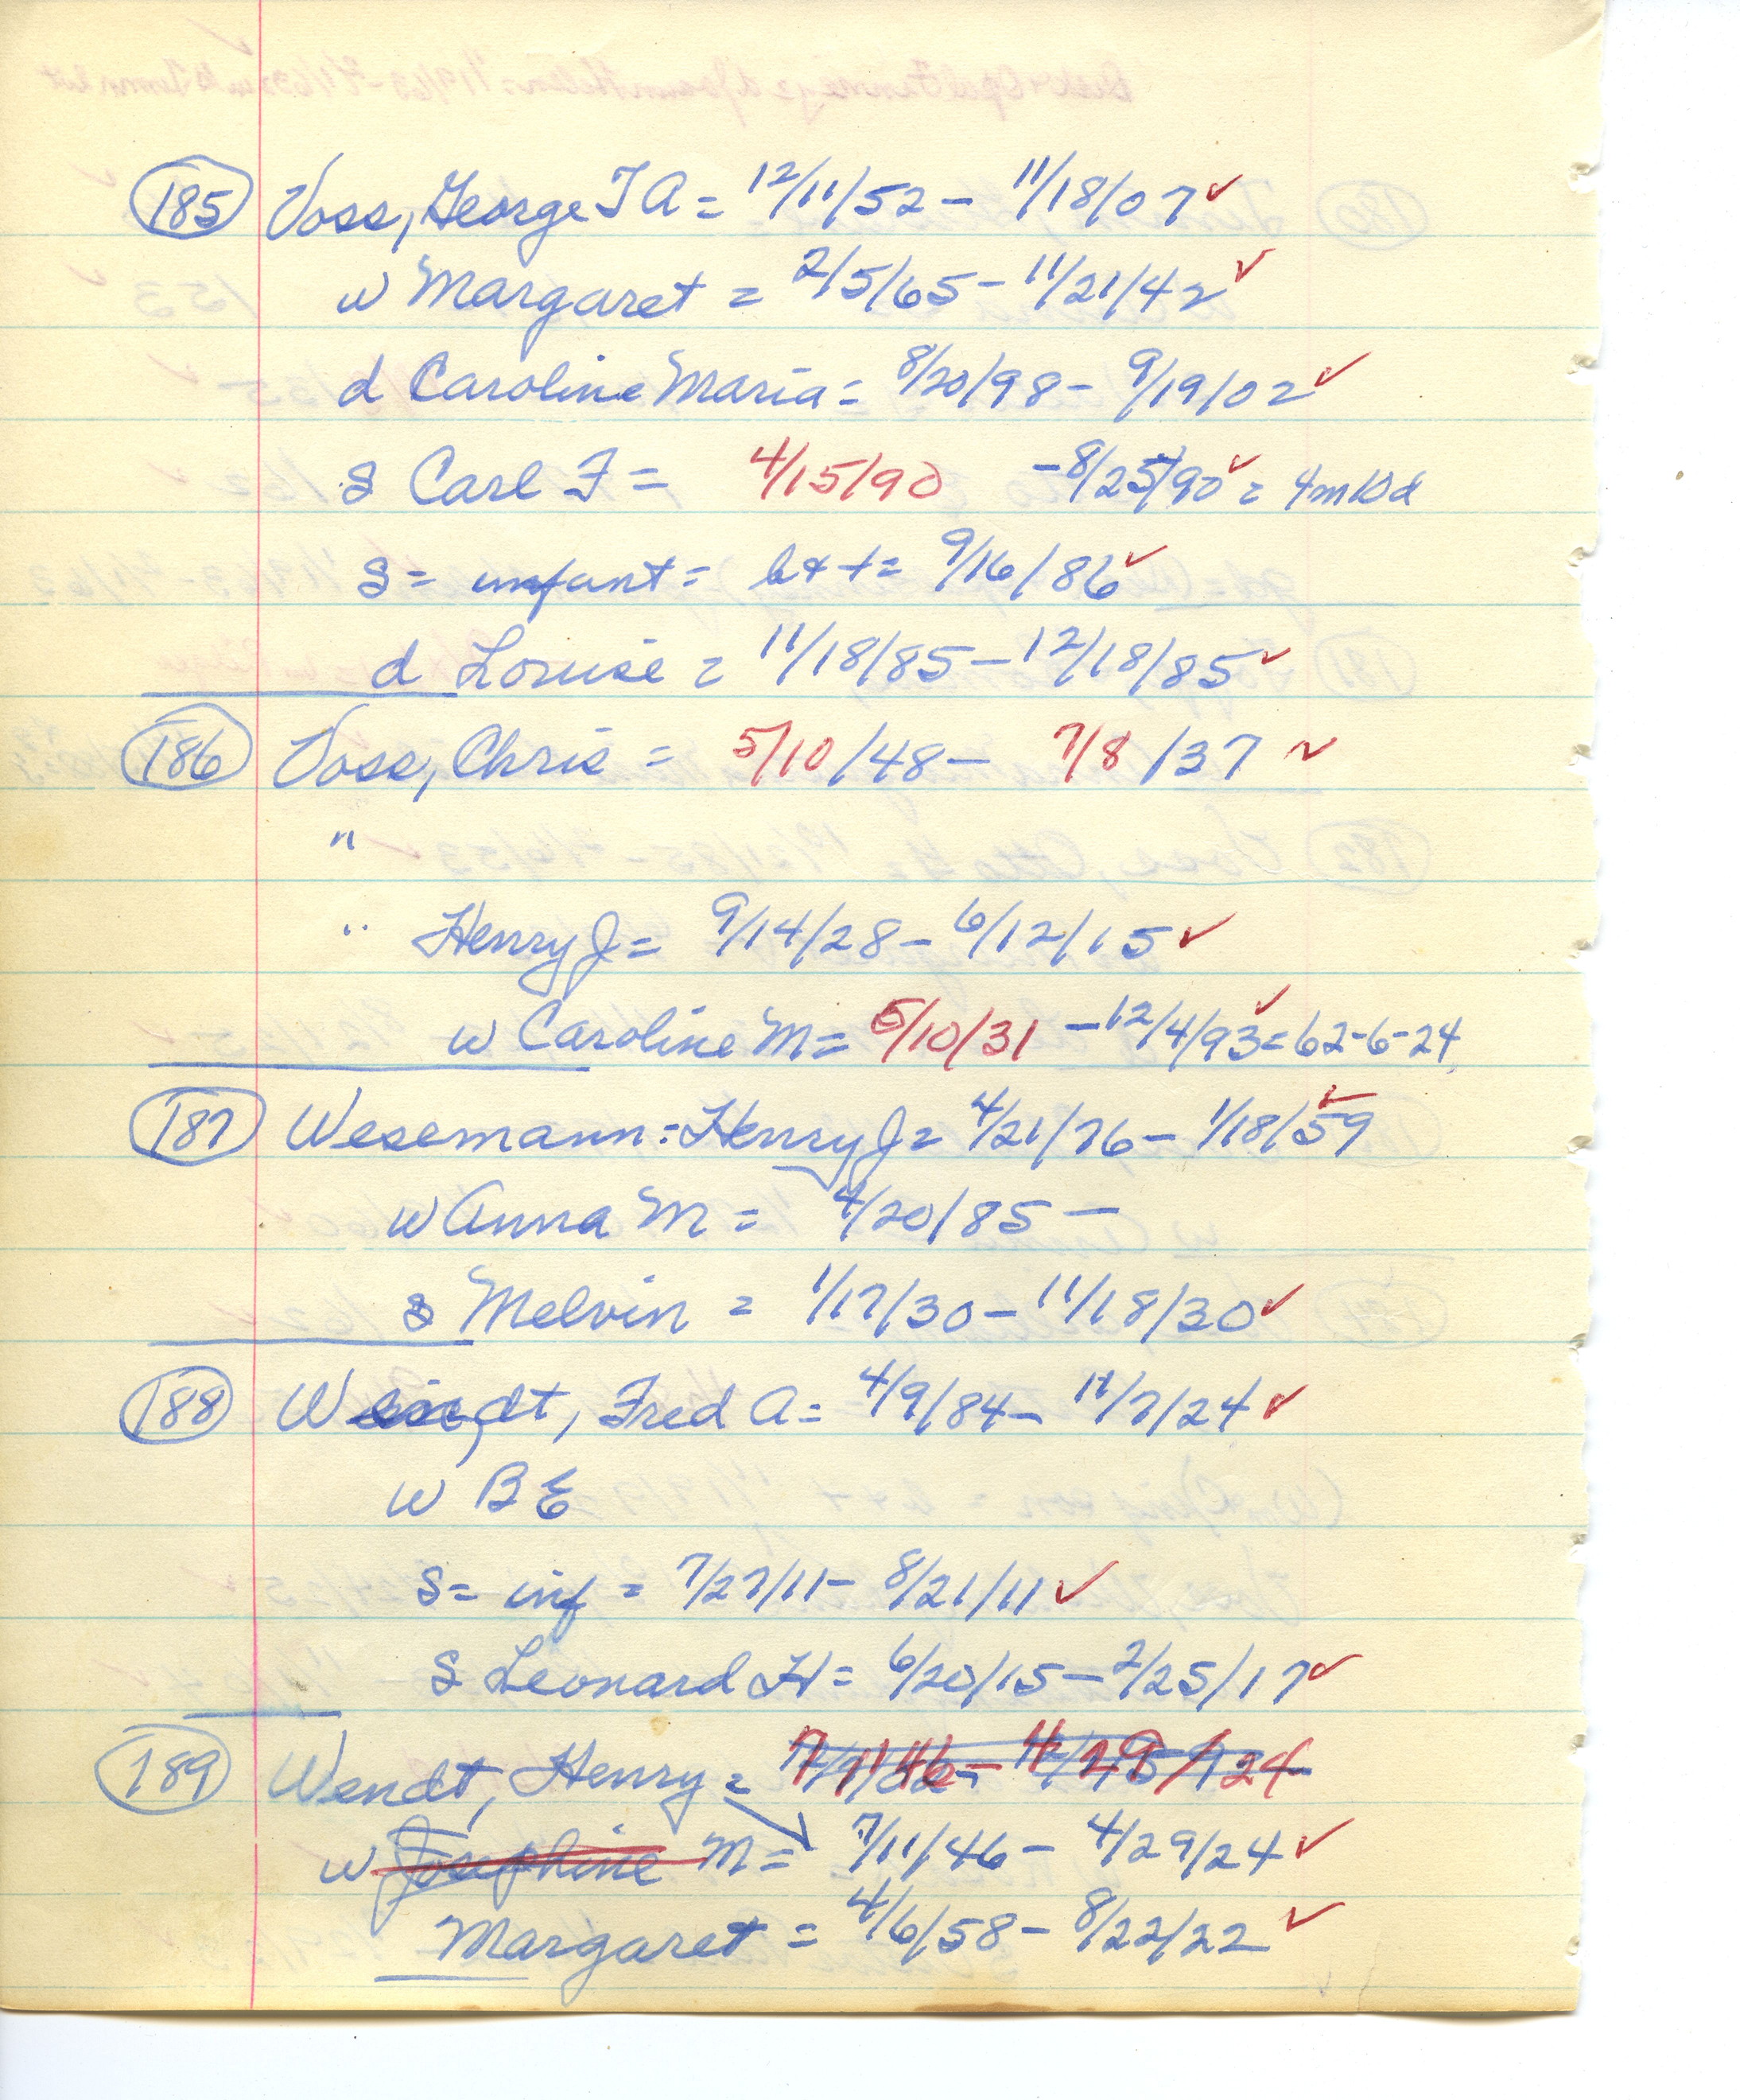 185 Voss, George T A = 12/11/52 - 11/18/07 ✓
w Margaret = 2/5/65 - 11/21/42 ✓
d Caroline Maria = 8/20/98 - 9/19/02 ✓
s Carl F = 4/15/90 - 8/25/90 ✓ = 4m 10d
s = infant = b & + = 9/16/86 ✓
d Louise = 11/18/85 - 12/18/85 ✓
186 Voss, Chris = 5/10/48 - 7/8/37 ✓
"
" Henry J = 9/14/28 - 6/12/15 ✓
w Caroline M = 5/10/31 - 12/4/93 ✓ = 62-6-24
187 Wesemann = Henry J = 4/21/76 - 1/18/59 ✓
w Anna M = 4/20/85 -
s Melvin = 1/17/30 - 11/18/30 ✓
188 Wendt, Fred A = 4/9/84 - 11/7/24 ✓
w B E
s = inf = 7/27/11 - 8/21/11 ✓
s Leonard H = 6/20/15 - 2/25/17 ✓
189 Wendt, Henry = 7/11/46 - 4/29/24
w Josephine M = 7/11/46 - 4/29/24 ✓
Margaret = 4/6/58 - 8/22/22 ✓